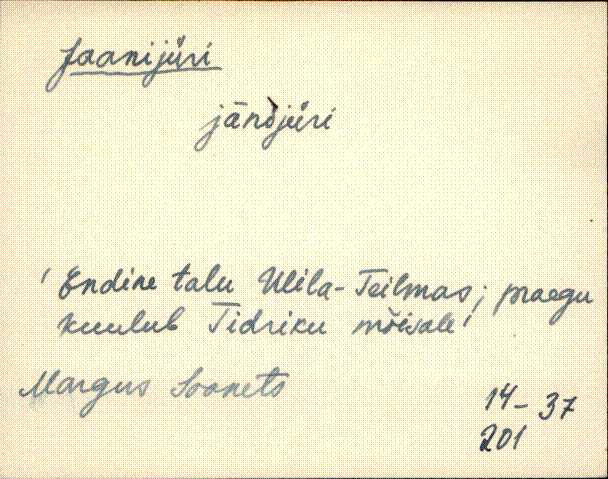 Jaanijüri
jānijüri
' Endine talu Ulila-Teilmas; praegu
kuulub Tidriku mõisale'
Margus Soonets
14-37
201